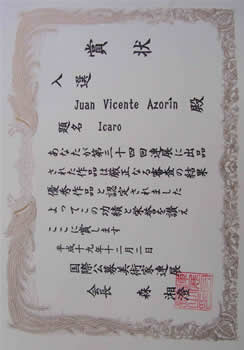 賞状
入選
Juan Vicente Azorin 殿
題名 Icaro
あなたが第三十四回連展に出品
された作品は厳正なる審査の結果
優秀作品と認定されました
よってこの功績と栄誉を讃え
ここに賞します
平成十九年十二月二日
国際公募美術家連展
会長 森 湘澄